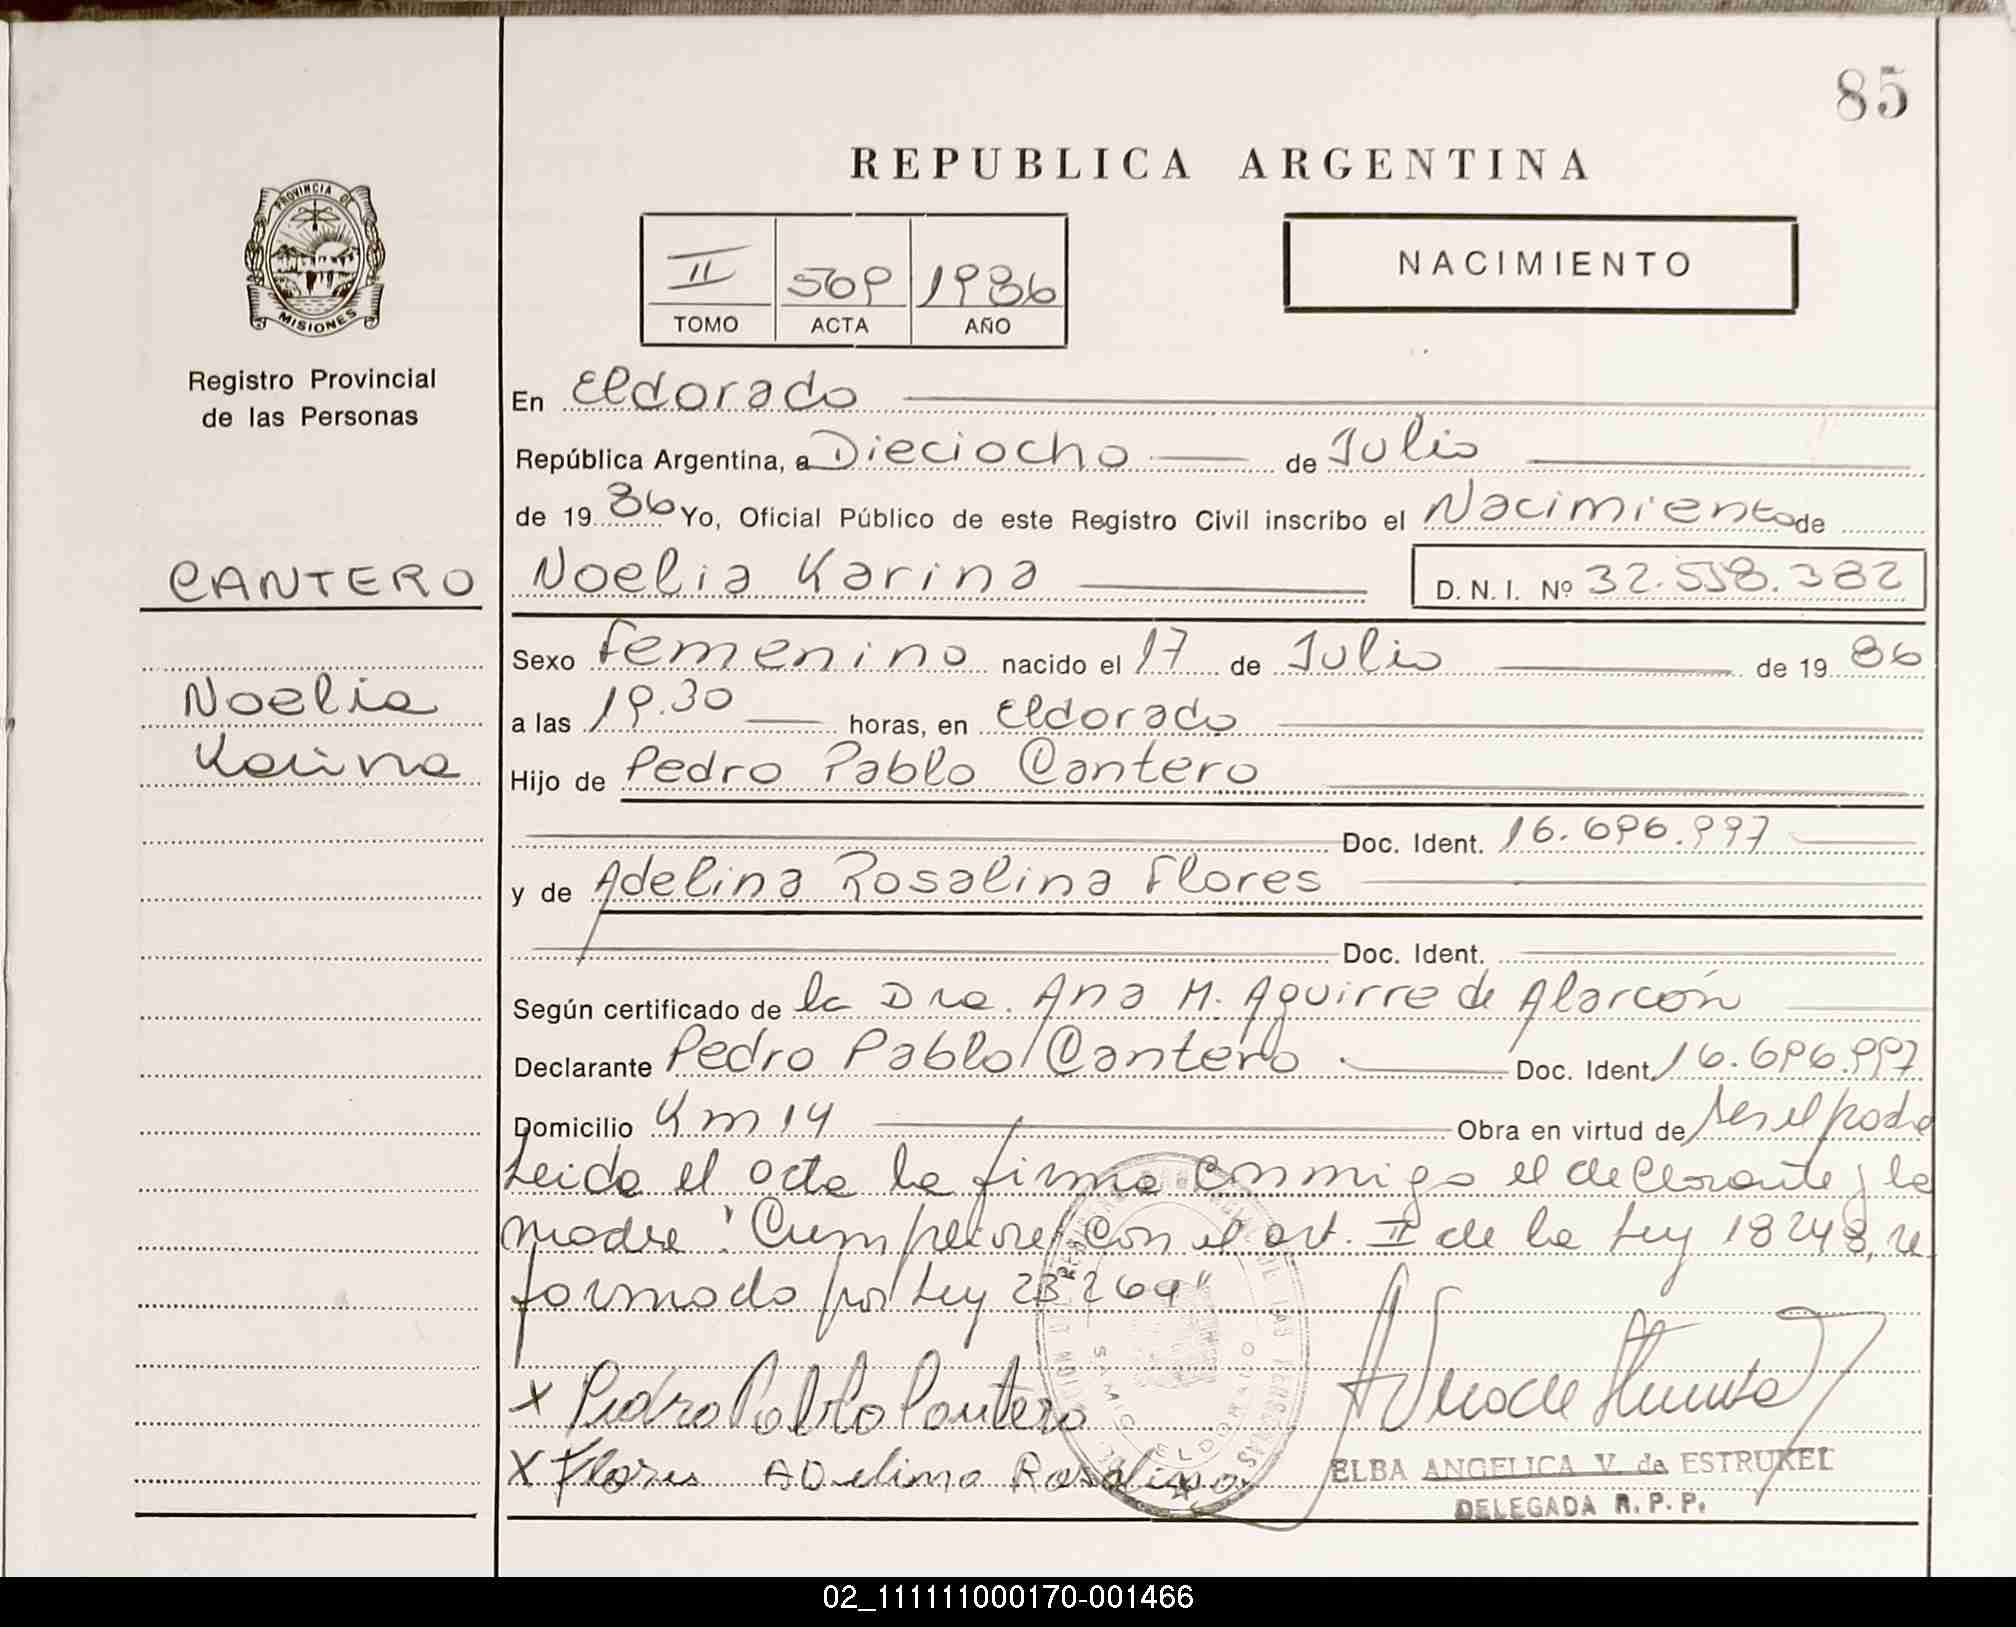 85
REPUBLICA ARGENTINA
PROVINCIA DE
MISIONES
Registro Provincial
de las Personas
II 509 1986
TOMO ACTA AÑO
NACIMIENTO
En Eldorado
República Argentina, a Dieciocho de Julio
de 1986 Yo, Oficial Público de este Registro Civil inscribo el Nacimiento de
CANTERO
Noelia Karina D. N. I. Nº 32.558.382
Sexo Femenino nacido el 17 de Julio de 1986
Noelia
a las 19.30 horas, en Eldorado
Karina
Hijo de Pedro Pablo Cantero
Doc. Ident. 16.696.997
y de Adelina Rosalina Flores
Doc. Ident.
Según certificado de la Dra. Ana M. Aguirre de Alarcón
Declarante Pedro Pablo Cantero Doc. Ident. 16.696.997
Domicilio Km 14 Obra en virtud de ser el padre
Leida el acta la firma conmigo el declarante y la
madre "Cumplióse con el art. II de la Ley 18248, re
formado por Ley 23264"
x Pedro Pablo Cantero
x Flores ADelina Rosalina
SAMIC ELDORADO
ELBA ANGELICA V. de ESTRUKEL
DELEGADA R. P. P.
02_111111000170-001466